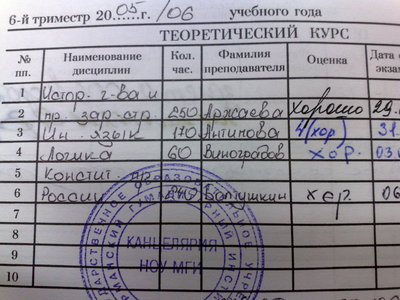 6-й триместр 2005 г. /06 учебного года
ТЕОРЕТИЧЕСКИЙ КУРС
№ пп. Наименование дисциплин Кол. час. Фамилия преподавателя Оценка Дата
1 Истор. г-ва и
2 пр. зар. стр. 250 Аржаева Хорошо 29.
3 Ин. язык 170 Антипова 4 (хор) 31.
4 Логика 60 Виноградов хор. 03.
5 Констит. пр.
6 России 240 хер. 06
7
8
9
10
КАНЦЕЛЯРИЯ
НОУ МГИ